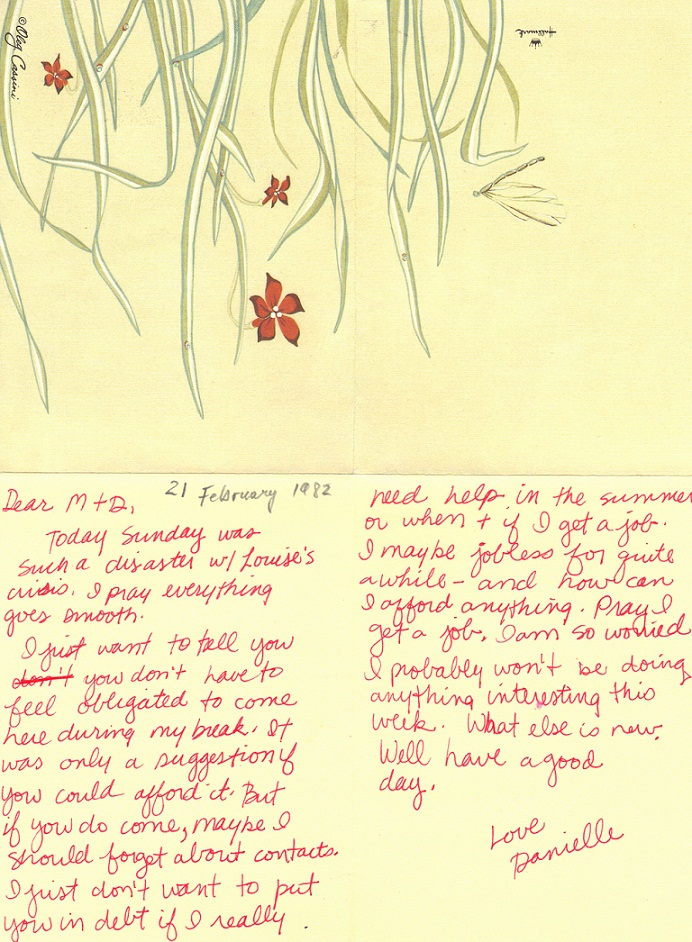 ©Oleg Cassini
Hallmark
21 February 1982
Dear M+D,
Today Sunday was
such a disaster w/ Louise's
crisis. I pray everything
goes smooth.
I just want to tell you
don't you don't have to
feel obligated to come
here during my break. It
was only a suggestion if
you could afford it. But
if you do come, maybe I
should forget about contacts.
I just don't want to put
you in debt if I really
need help in the summer
or when + if I get a job.
I maybe jobless for quite
awhile - and how can
I afford anything. Pray I
get a job. I am so worried
I probably won't be doing
anything interesting this
week. What else is new.
Well have a good
day.
Love
Danielle